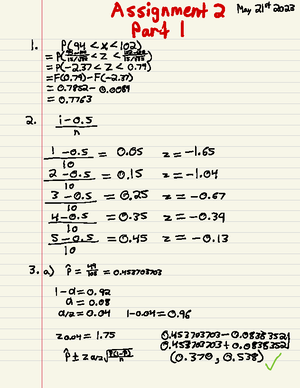 Assignment 2 May 21st 2023
Part 1
1. P(94 < x < 102)
= P(-2.37 < Z < 0.79)
= F(0.79) - F(-2.37)
= 0.7852 - 0.0089
= 0.7763
2. i-0.5 / n
1 - 0.5 / 10 = 0.05 z = -1.65
2 - 0.5 / 10 = 0.15 z = -1.04
3 - 0.5 / 10 = 0.25 z = -0.67
4 - 0.5 / 10 = 0.35 z = -0.39
5 - 0.5 / 10 = 0.45 z = -0.13
3. a) p̂ = 49/108 = 0.453703703
1 - α = 0.92
α = 0.08
α/2 = 0.04 1 - 0.04 = 0.96
z 0.04 = 1.75 0.453703703 - 0.08383521
p̂ ± z α/2 √p̂(1-p̂)/n 0.453703703 + 0.08383521
(0.370, 0.538) ✓